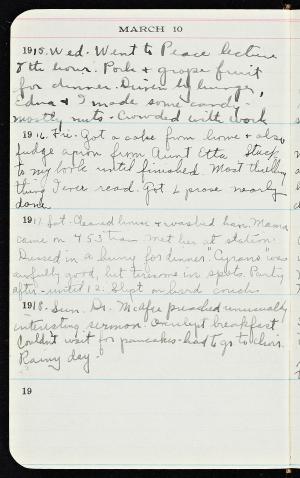 MARCH 10
1915. Wed. Went to Peace lecture
8th hour. Pork & grape fruit
for dinner. Driven by hunger,
Edna & I made some candy -
mostly nuts. Crowded with work
1916. Fri. Got a cake from home & also
fudge apron from Aunt Etta. Stuck
to my book until finished. Most thrilling
thing I ever read. Got L prose nearly
done.
1917. Sat. Cleaned house & washed hair. Mama
came on 4 53 train. Met her at station.
Dressed in a hurry for dinner. "Cyrano" was
awfully good, but tiresome in spots. Party
after - until 12. Slept on hard couch.
1918. Sun. Dr. McAfee preached unusually
interesting sermon. breakfast.
Couldn't wait for pancakes - had to go to choir.
Rainy day.
19